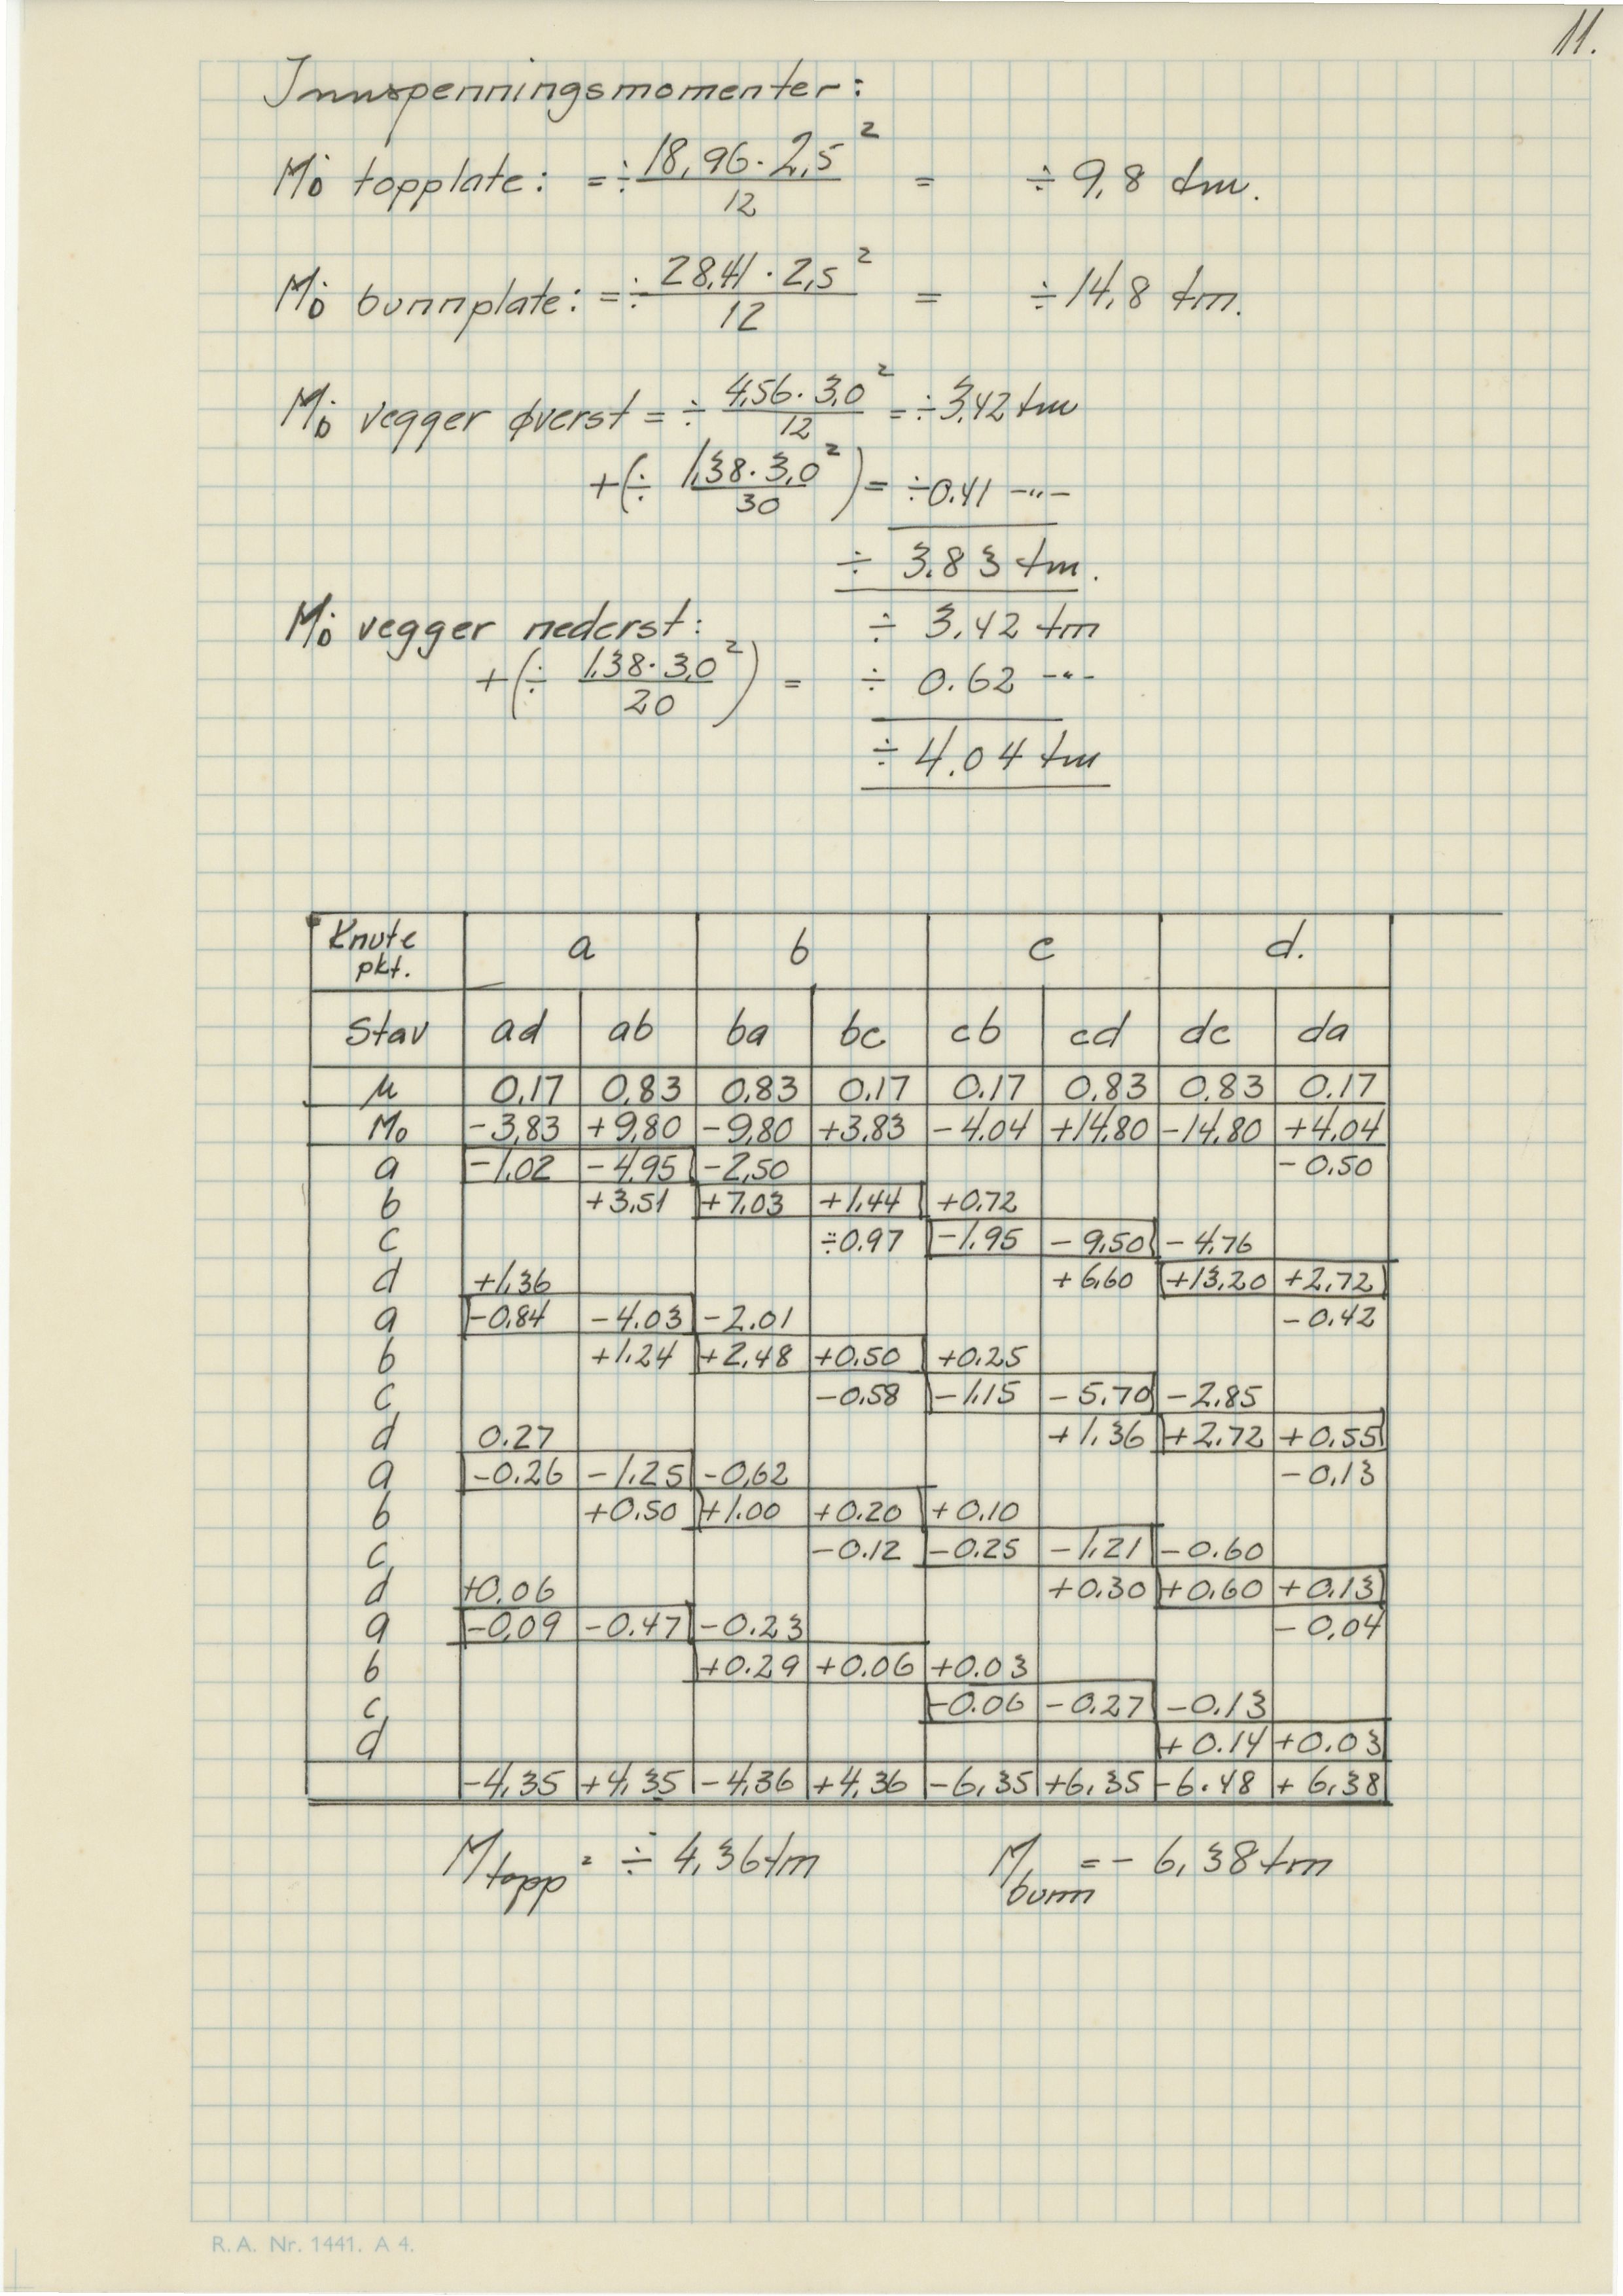 11.
Innspenningsmomenter:
Mö topplate: = ÷ 18,96 · 2,5² / 12 = ÷ 9,8 tm.
Mö bunnplate: = ÷ 28,41 · 2,5² / 12 = ÷ 14,8 tm.
Mö vegger øverst = ÷ 4,56 · 3,0² / 12 = ÷ 3,42 tm
+ (÷ 1,38 · 3,0² / 30) = ÷ 0.41 -"-
÷ 3.83 tm.
Mö vegger nederst: ÷ 3,42 tm
+ (÷ 1,38 · 3,0² / 20) = ÷ 0.62 -"-
÷ 4.04 tm
Knute pkt. a b c d.
Stav ad ab ba bc cb cd dc da
µ 0,17 0,83 0,83 0,17 0.17 0,83 0,83 0.17
Mo -3,83 +9,80 -9,80 +3,83 -4.04 +14,80 -14,80 +4,04
a -1,02 -4,95 -2,50 -0,50
b +3,51 +7,03 +1,44 +0,72
c ÷0,97 -1,95 -9,50 -4,76
d +1,36 +6,60 +13,20 +2,72
a -0,84 -4.03 -2.01 -0,42
b +1,24 +2,48 +0,50 +0,25
c -0,58 -1,15 -5,70 -2,85
d 0.27 +1,36 +2,72 +0,55
a -0.26 -1,25 -0,62 -0,13
b +0.50 +1.00 +0.20 +0,10
c -0.12 -0.25 -1,21 -0.60
d +0.06 +0.30 +0.60 +0.13
a -0,09 -0.47 -0.23 -0,04
b +0.29 +0.06 +0.03
c -0.06 -0.27 -0.13
d +0.14 +0.03
-4,35 +4,35 -4,36 +4,36 -6,35 +6,35 -6.48 +6,38
Mtopp = ÷ 4,36 tm Mbunn = - 6,38 tm
R.A. Nr. 1441. A 4.